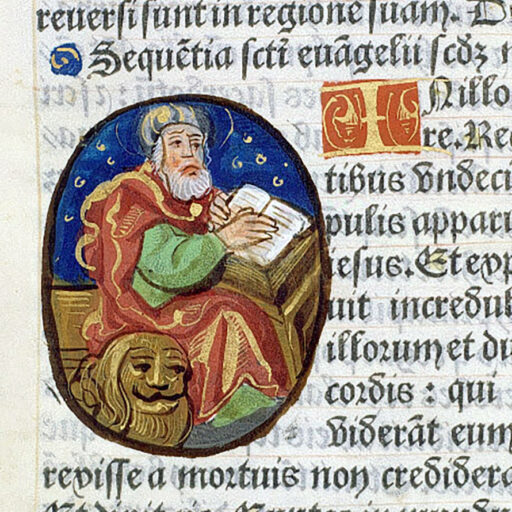 reuersi sunt in regione suam. D
Sequẽtia scti euãgelii scdz
INillo
re. Rec
tibus vndeci
pulis apparu
iesus. Et exp
uit incredul
illorum et du
cordis : qui
viderãt eum
rexisse a mortuis non credidera